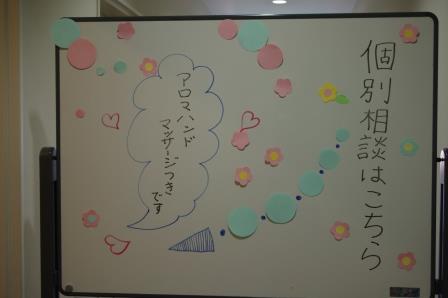 個別相談はこちら
アロマハンド
マッサージつき
です